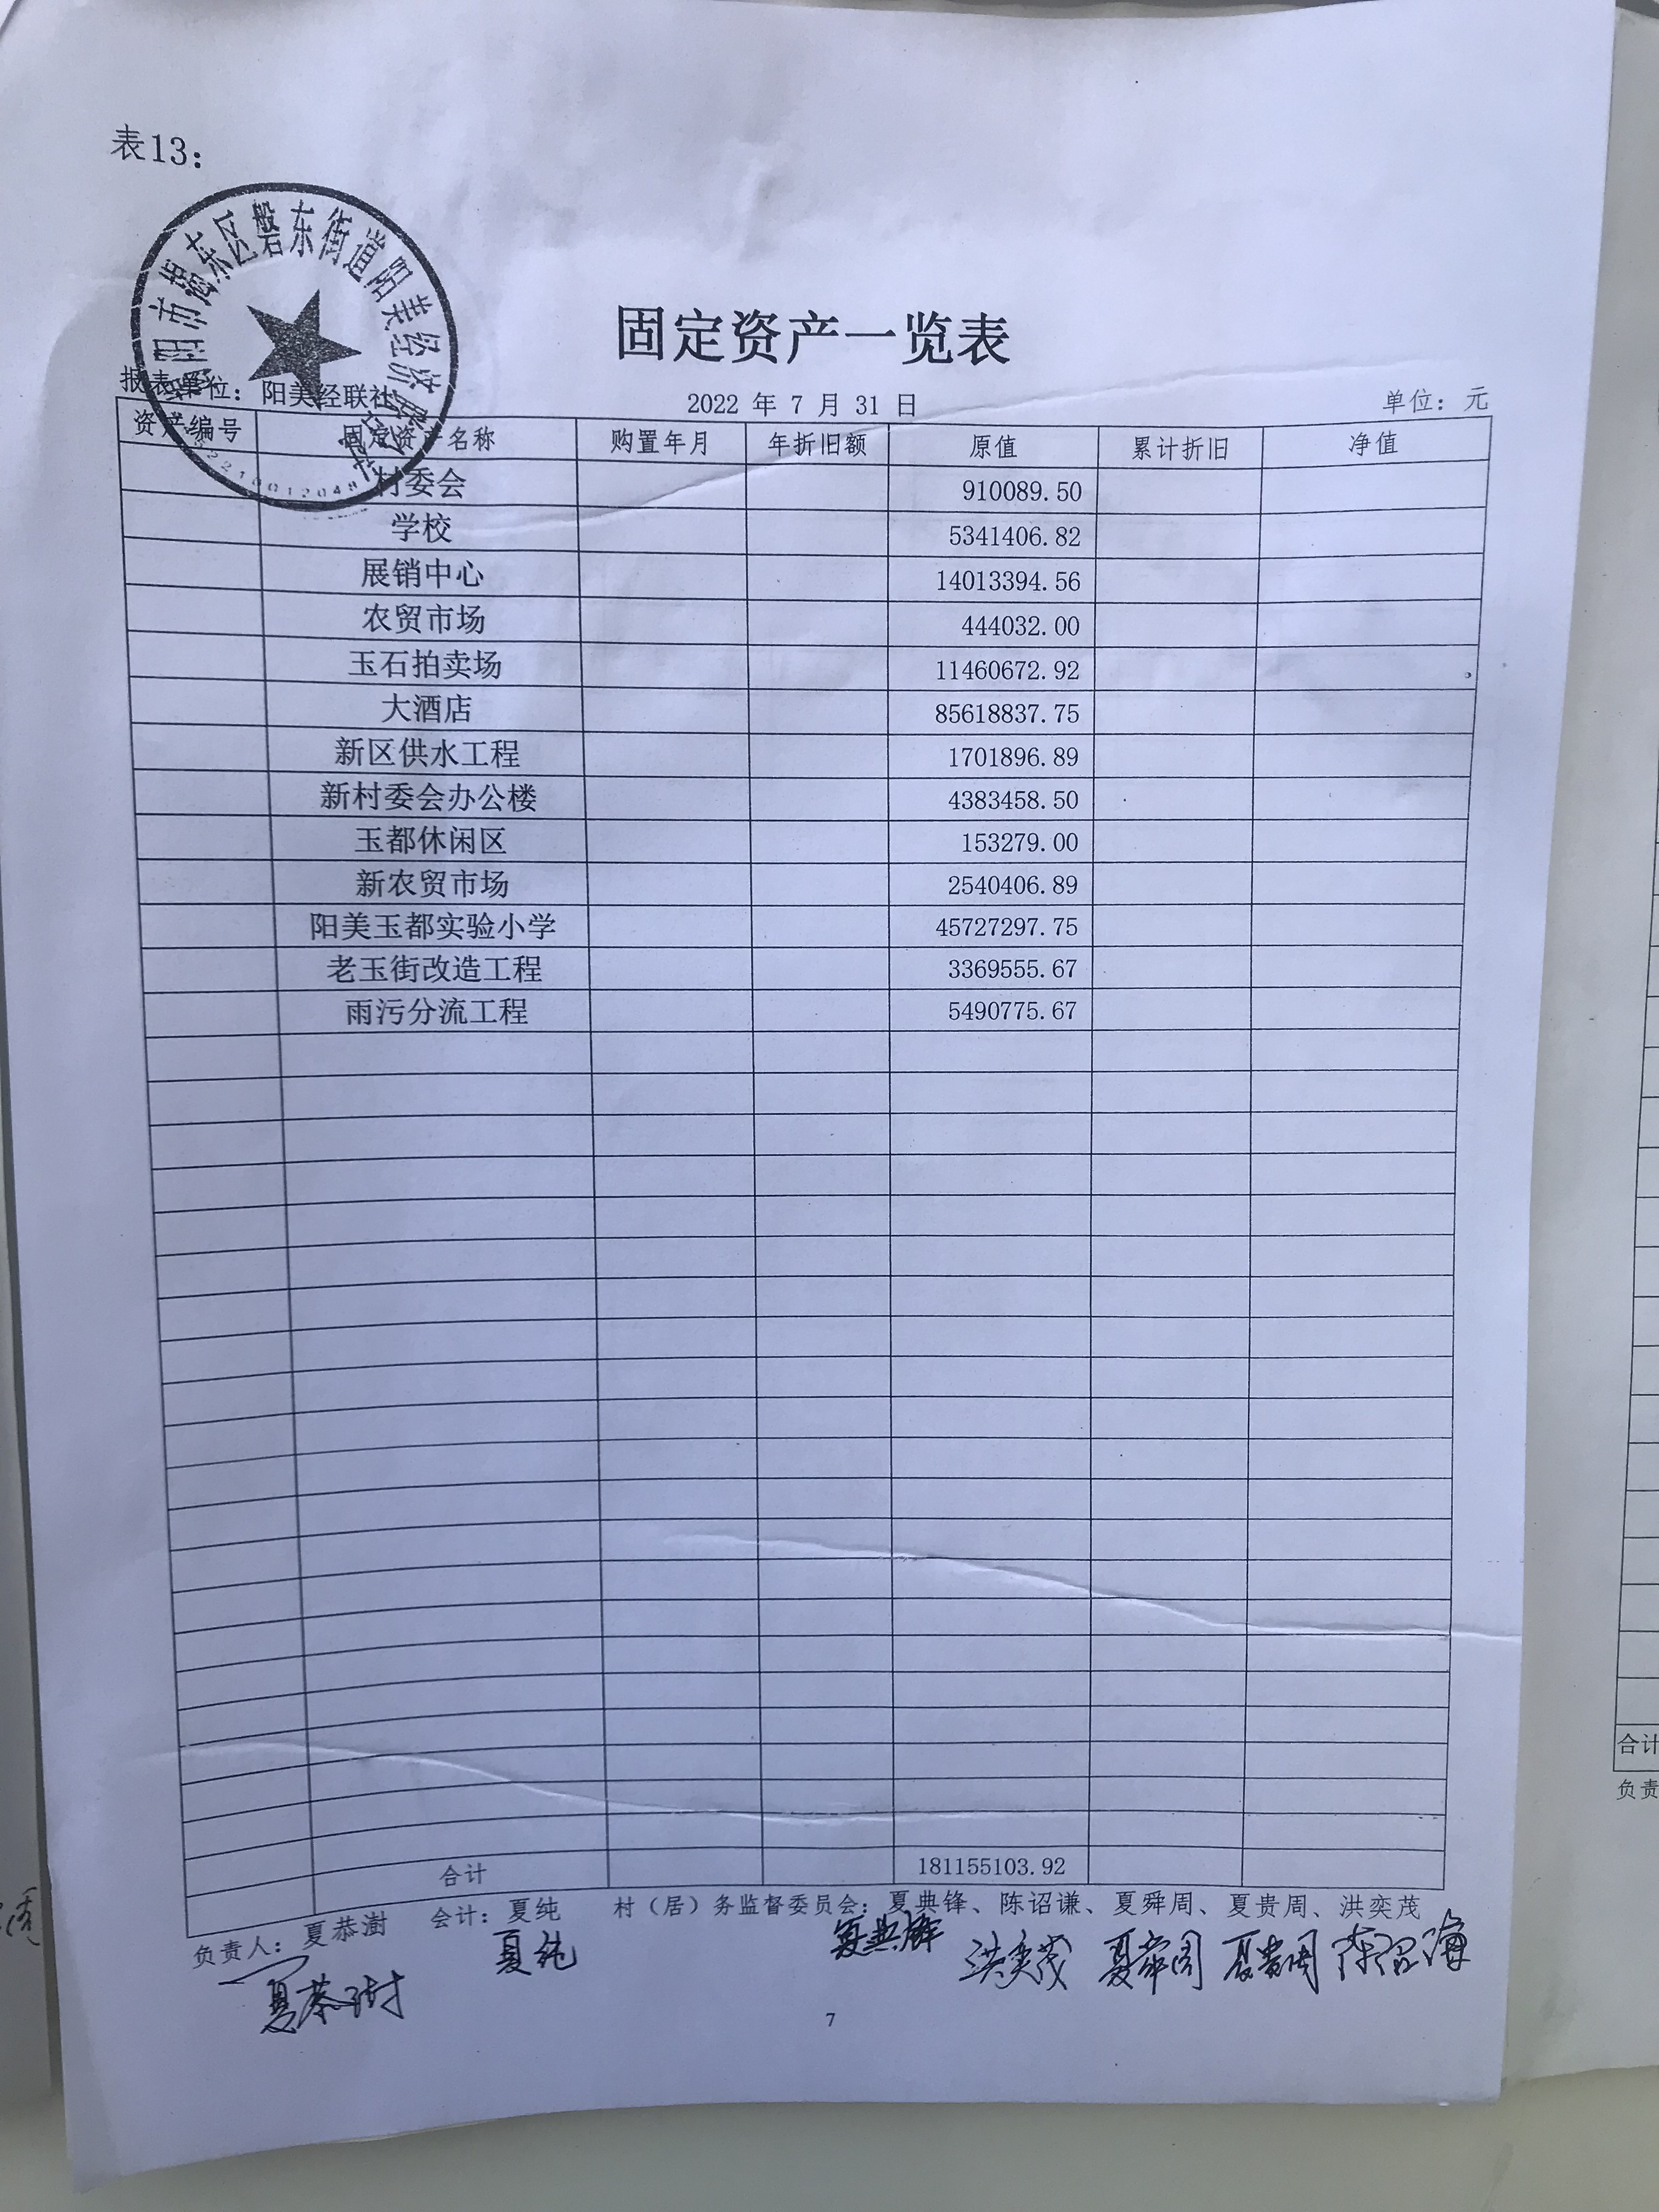 表13：
揭阳市揭东区磐东街道阳美经济联合社
固定资产一览表
报表单位：阳美经联社 2022 年 7 月 31 日 单位：元
资产编号 固定资产名称 购置年月 年折旧额 原值 累计折旧 净值
村委会 910089.50
学校 5341406.82
展销中心 14013394.56
农贸市场 444032.00
玉石拍卖场 11460672.92
大酒店 85618837.75
新区供水工程 1701896.89
新村委会办公楼 4383458.50
玉都休闲区 153279.00
新农贸市场 2540406.89
阳美玉都实验小学 45727297.75
老玉街改造工程 3369555.67
雨污分流工程 5490775.67
合计 181155103.92
负责人：夏恭澍 会计：夏纯 村（居）务监督委员会：夏典锋、陈诏谦、夏舜周、夏贵周、洪奕茂
夏恭澍 夏纯 夏典锋 洪奕茂 夏舜周 夏贵周
7
合计
负责